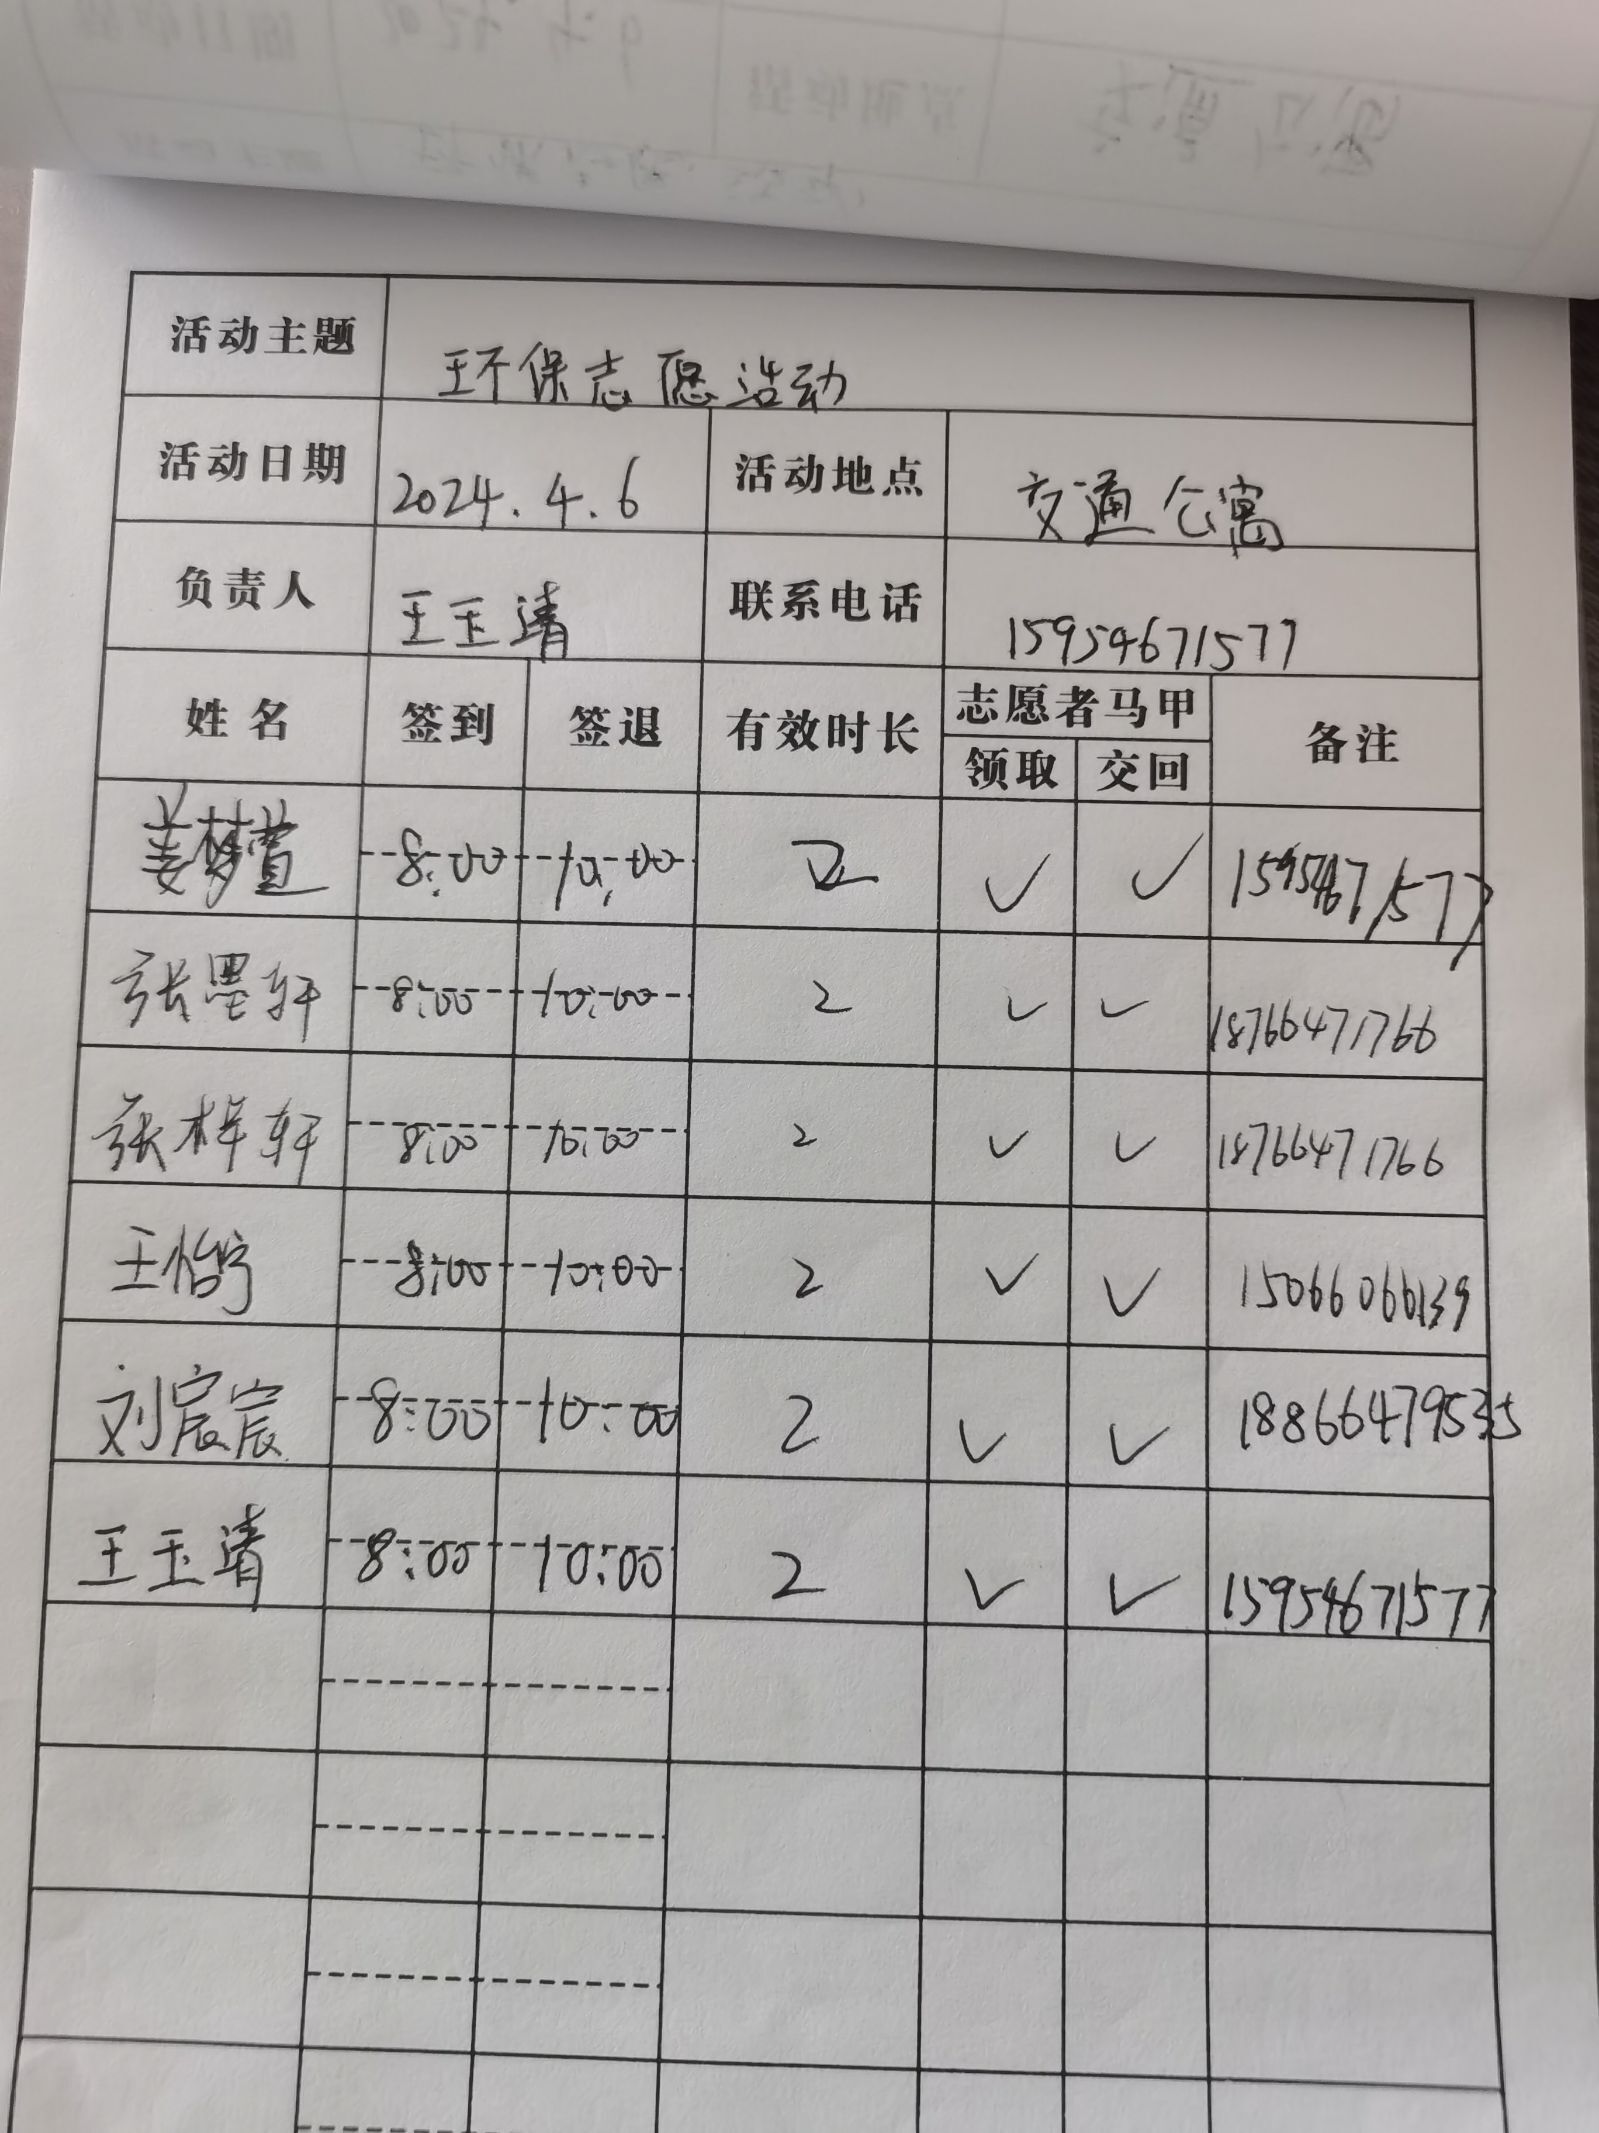 活动主题 环保志愿活动
活动日期 2024.4.6 活动地点 交通公寓
负责人 王玉清 联系电话 15954671577
姓名 签到 签退 有效时长 志愿者马甲 备注
领取 交回
姜梦萱 8:00 10:00 2 ✓ ✓ 15954671577
张墨轩 8:00 10:00 2 ✓ ✓ 18766471766
张梓轩 8:00 10:00 2 ✓ ✓ 18766471766
王怡宁 8:00 10:00 2 ✓ ✓ 15066066139
刘宸宸 8:00 10:00 2 ✓ ✓ 18866479535
王玉清 8:00 10:00 2 ✓ ✓ 15954671577